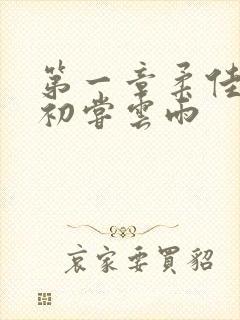 第一章柔佳
初嘗雲雨
哀家要買貂